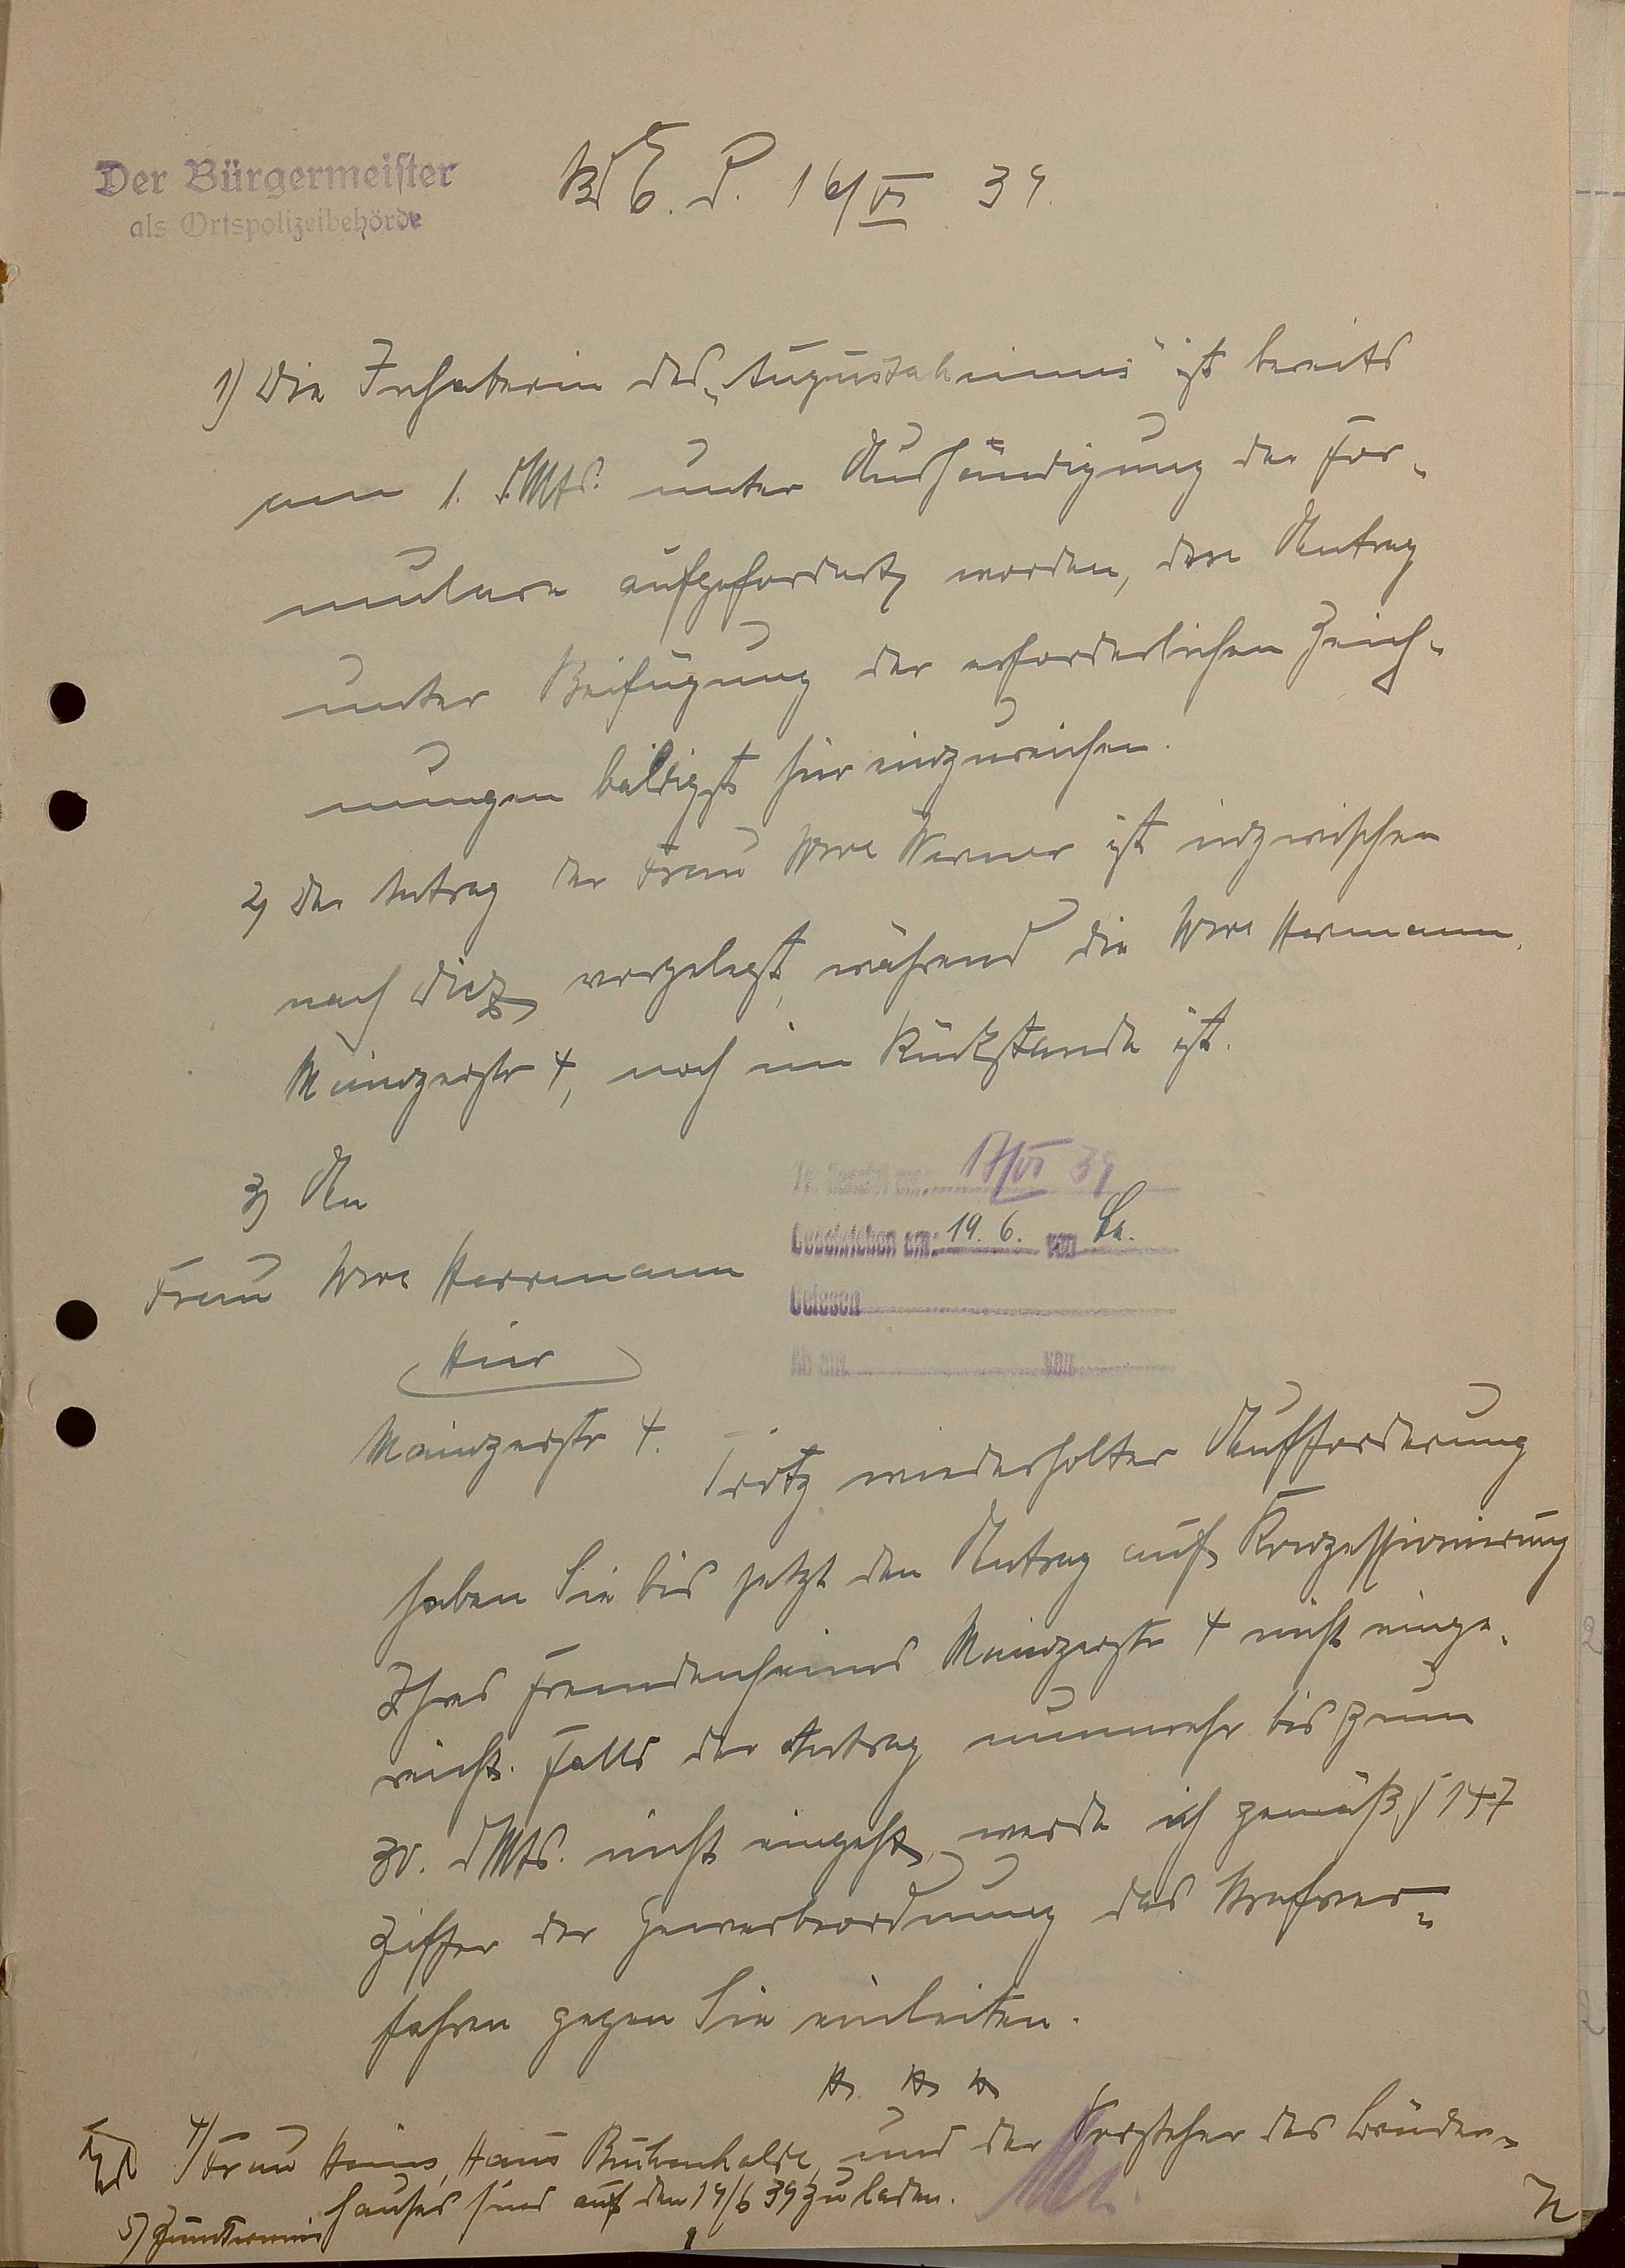 Der Bürgermeister
als Ortspolizeibehörde
B E. d. 16/VI 39.
1) Die Inhaberin des „Augustaheimes" ist bereits
am 1. d.Mts. unter Aushändigung der For-
mulare aufgefordert worden, den Antrag
unter Beifügung der erforderlichen Zeich-
nungen baldigst hier einzureichen.
2) Der Antrag der Frau Wwe Werner ist inzwischen
nach Diez vorgelegt, während die Wwe Hermann,
Mainzerstr 4, noch im Rückstande ist.
3) An
17/VI 39
Geschrieben am: 19. 6. von La.
Frau Wwe Herrmann
Gelesen
Hier
Ab am von
Mainzerstr 4.
Trotz wiederholter Aufforderung
haben Sie bis jetzt den Antrag auf Konzessionierung
Ihres Fremdenheimes Mainzerstr 4 nicht einge-
reicht. Falls der Antrag nunmehr bis zum
30. d Mts. nicht eingeht, werde ich gemäß § 147
Ziffer der Gewerbeordnung das Strafver-
fahren gegen Sie einleiten.
4/ Frau Heins, Haus und der Vorsteher des Brüder-
hauses sind auf den 19/6 39 zu laden.
5) Zum Termin